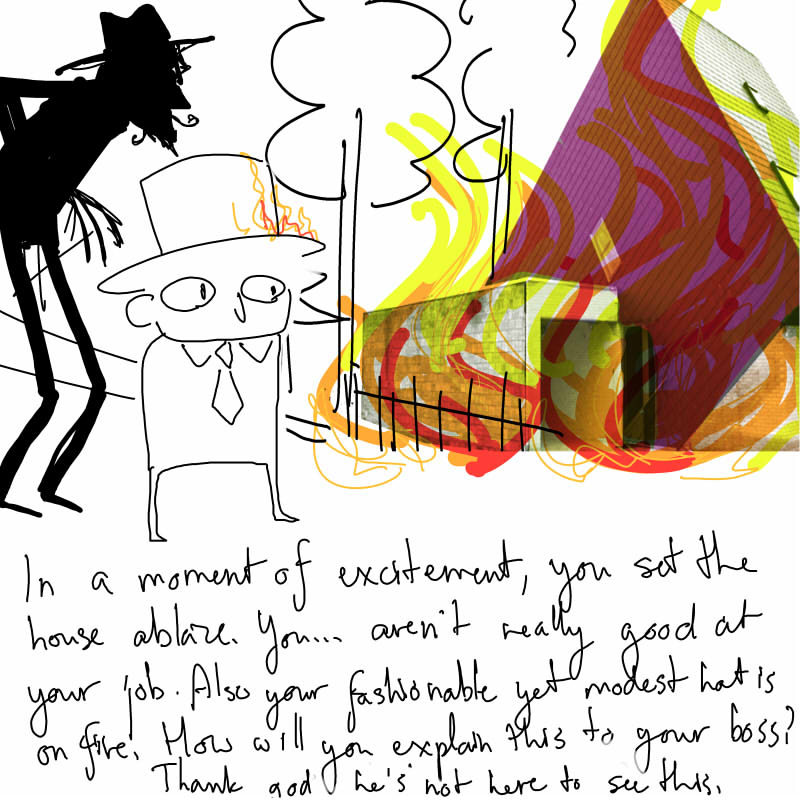 In a moment of excitement, you set the
house ablaze. You... aren't really good at
your job. Also your fashionable yet modest hat is
on fire. How will you explain this to your boss?
Thank god he's not here to see this.